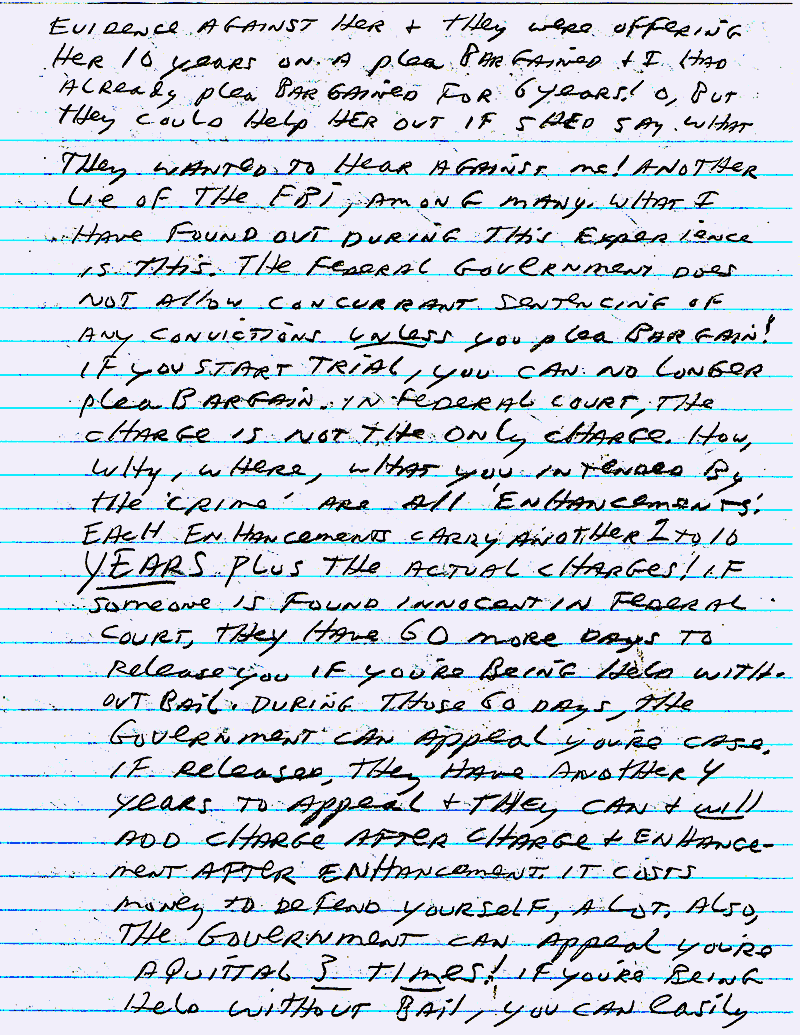 EVIDENCE AGAINST HER + THEY WERE OFFERING
HER 10 years ON A plea BARGAINED + I HAD
Already plea BARGAINED FOR 6 years! O, BUT
THEY COULD Help HER OUT IF SHED SAY WHAT
THEY WANTED TO HeAR AGAINST me! ANOTHER
Lie OF THE FBI, AMONG MANY. WHAT I
HAVE FOUND OUT DURING THis Experience
is THis. THE Federal GOVERNMENT DOES
NOT Allow CONCURRANT SENTENCING OF
ANY CONVICTIONS UNLESS you plea BARGAIN!
IF YOU START TRIAL, YOU CAN NO LONGER
plea BARGAIN. IN FEDERAL COURT, THE
CHARGE IS NOT THE ONLY CHARGE. HOW,
WHY, WHERE, WHAT YOU INTENDED By
THE 'CRIME' ARE All 'ENHANCEMENTS'.
EACH ENHANCEMENTS CARRY ANOTHER 2 TO 10
YEARS PLUS THE ACTUAL CHARGES! IF
SOMEONE IS FOUND INNOCENT IN FEDERAL
COURT, THEY HAVE 60 MORE DAYS TO
Release you IF YOU'RE BEING Held WITH-
OUT BAIL. DURING THOSE 60 DAYS, THE
GOVERNMENT CAN Appeal you're CASE.
IF released, THEY HAVE ANOTHER 4
years TO Appeal + THEY CAN + will
ADD CHARGE AFTER CHARGE + ENHANCE-
MENT AFTER ENHANCEMENT. IT COSTS
money to DEFEND YOURSELF, A LOT. Also,
THE GOVERNMENT CAN Appeal you're
AQUITTAL 3 TIMES! IF YOU'RE BEING
Held WITHOUT BAIL, YOU CAN easily